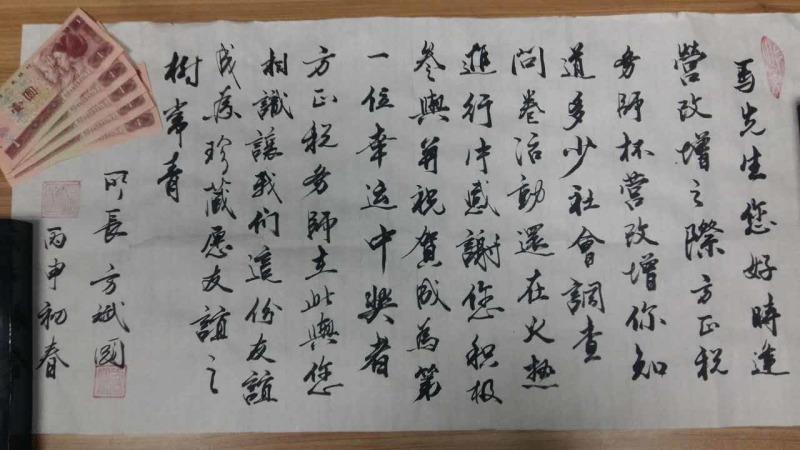 馬先生您好時逢
營改增之際方正稅
务師杯營改增你知
道多少社會調查
問卷活動還在火热
進行中感謝您积极
叅與并祝賀成為第
一位幸运中奖者
方正税务師在此與您
相識讓我们這份友誼
成為珍藏愿友誼之
樹常青
所長方斌國
丙申初春